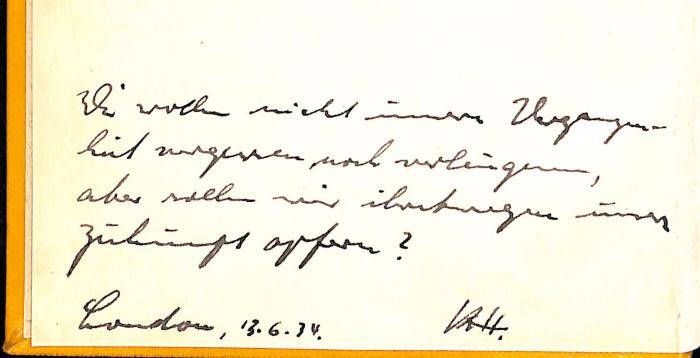 Wir wollen nicht unsere Vergangen-
heit vergessen noch verleugnen,
aber sollen wir ihretwegen unsere
Zukunft opfern?
London, 13.6.34. KH.